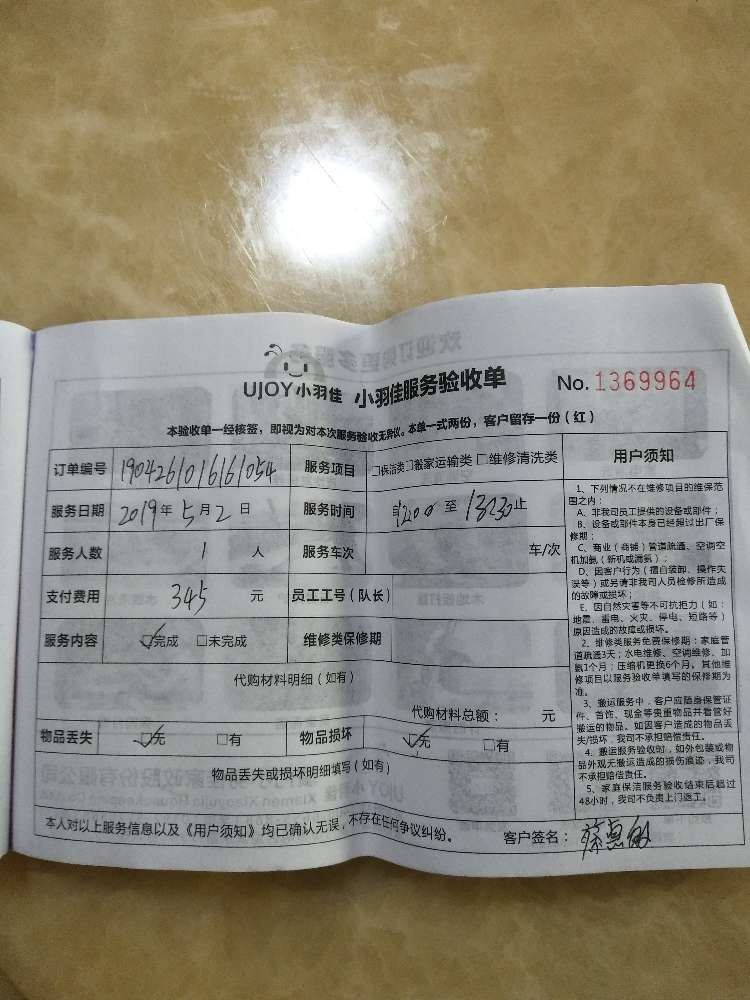 UJOY小羽佳 小羽佳服务验收单 No. 1369964
本验收单一经核签，即视为对本次服务验收无异议。本单一式两份，客户留存一份（红）
订单编号 190426101616054 服务项目 □保洁类□搬家运输类□维修清洗类
服务日期 2019年5月2日 服务时间 自1200至1330止
服务人数 1 人 服务车次 车/次
支付费用 345 元 员工工号（队长）
服务内容 ☑完成 □未完成 维修类保修期
代购材料明细（如有）
代购材料总额： 元
物品丢失 ☑无 □有 物品损坏 ☑无 □有
物品丢失或损坏明细填写（如有）
本人对以上服务信息以及《用户须知》均已确认无误，不存在任何争议纠纷。 客户签名：
用户须知
1、下列情况不在维修项目的维保范
围之内：
A、非我司员工提供的设备或部件；
B、设备或部件本身已经超过出厂保
修期；
C、商业（商铺）管道疏通、空调空
机加氨（新机或漏氨）；
D、因客户行为（擅自装卸、操作失
误等）或另请非我司人员检修所造成
的故障或损坏；
E、因自然灾害等不可抗拒力（如：
地震、雷电、火灾、停电、短路等）
原因造成的故障或损坏。
2、维修类服务免费保修期：家庭管
道疏通3天；水电维修、空调维修、加
氨1个月；压缩机更换6个月。其他维
修项目以服务验收单填写的保修期为
准。
3、搬运服务中，客户应随身保管证
件、首饰、现金等贵重物品并看管好
搬运的物品。如因客户造成的物品丢
失/损坏，我司不承担赔偿责任。
4、搬运服务验收时，如外包装或物
品外观无搬运造成的损伤痕迹，我司
不承担赔偿责任。
5、家庭保洁服务验收结束后超过
48小时，我司不负责上门返工。